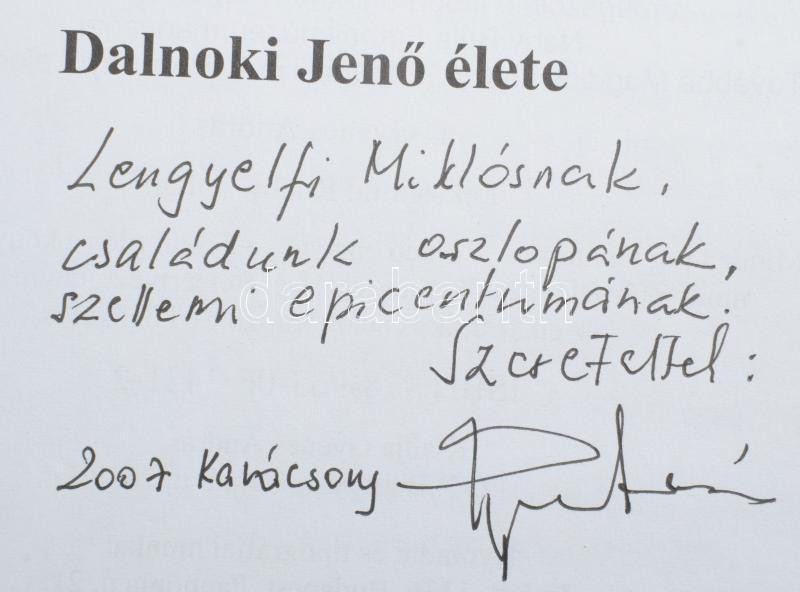 Dalnoki Jenő élete
Lengyelfi Miklósnak,
családunk oszlopának,
szellemi epicentumának.
Szeretettel:
2007 Karácsony
darabanth